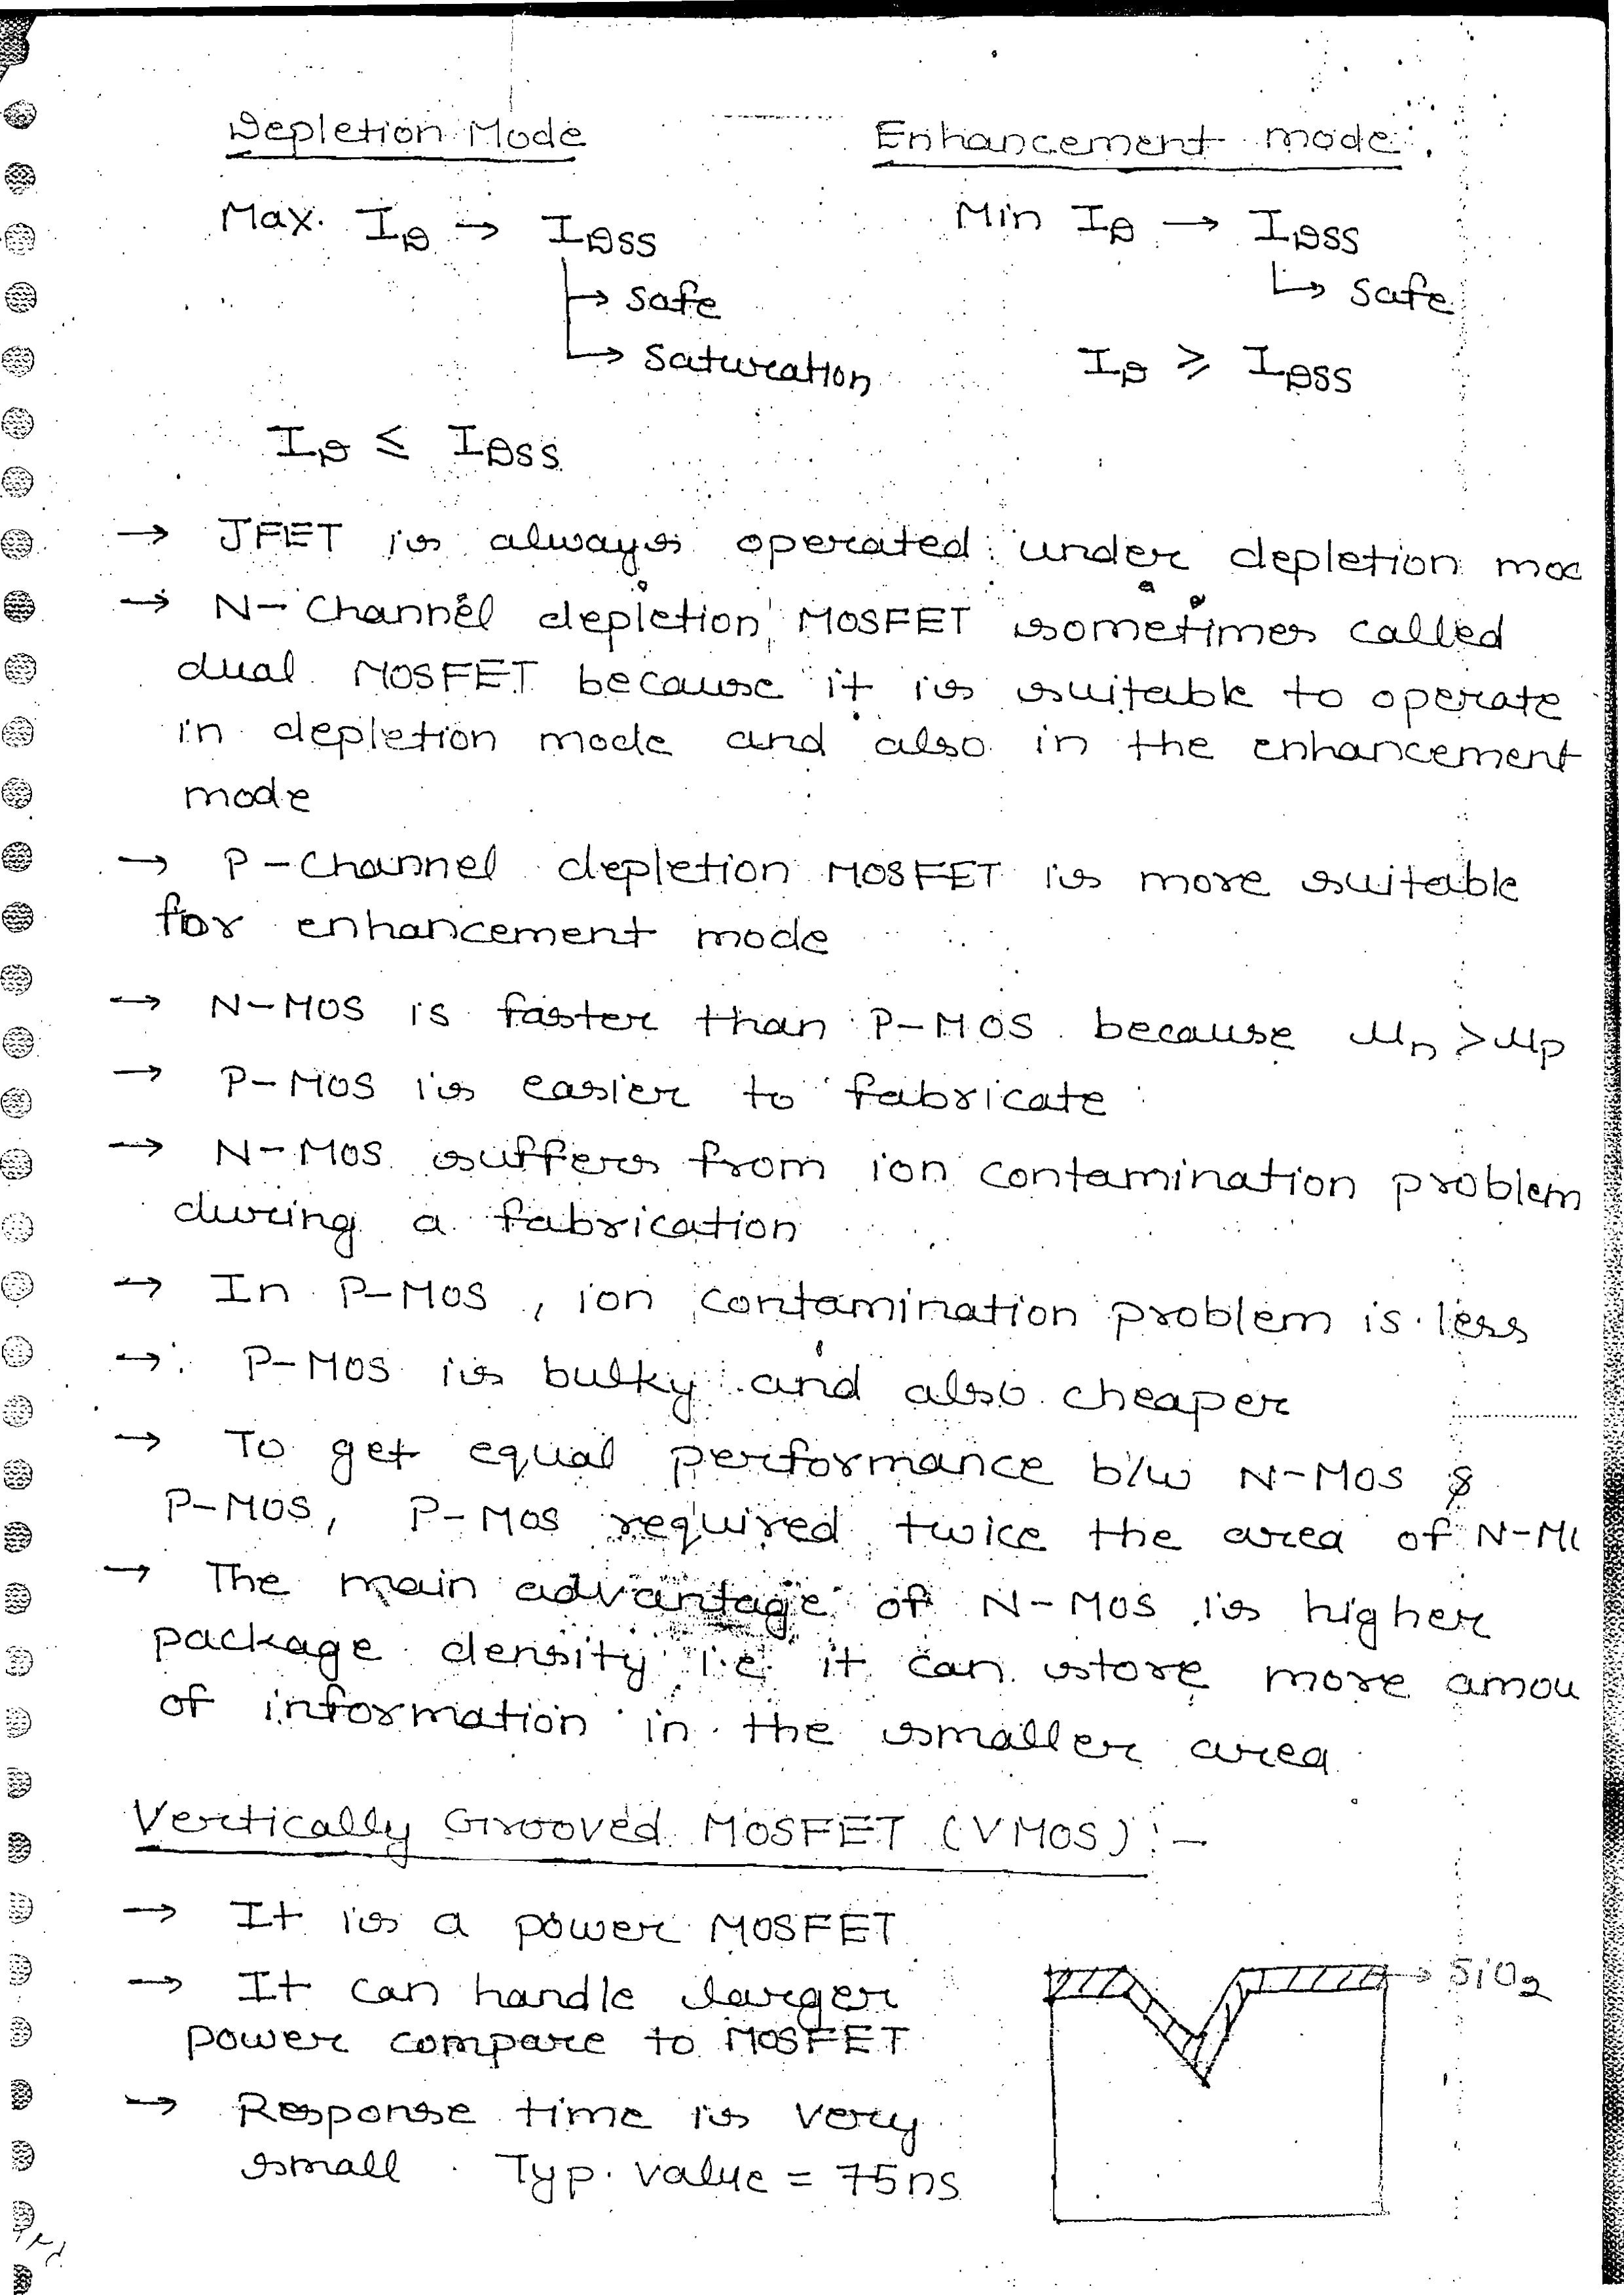 Depletion Mode
Enhancement mode:
Max. I_D → I_DSS
↳ safe
↳ saturation
I_D ≤ I_DSS
Min I_D → I_DSS
↳ safe
I_D ≥ I_DSS
→ JFET is always operated under depletion mod
→ N-Channel depletion MOSFET sometimes called
dual MOSFET because it is suitable to operate
in depletion mode and also in the enhancement
mode
→ P-Channel depletion MOSFET is more suitable
for enhancement mode
→ N-MOS is faster than P-MOS because μn > μp
→ P-MOS is easier to fabricate
→ N-MOS suffers from ion contamination problem
during a fabrication
→ In P-MOS, ion contamination problem is less
→ P-MOS is bulky and also cheaper
→ To get equal performance b/w N-MOS &
P-MOS, P-MOS required twice the area of N-M
→ The main advantage of N-MOS is higher
package density i.e it can store more amou
of information in the smaller area
Vertically Grooved MOSFET (VMOS):-
→ It is a power MOSFET
→ It can handle larger
power compare to MOSFET
→ Response time is very
small. Typ. value = 75ns
→ SiO2